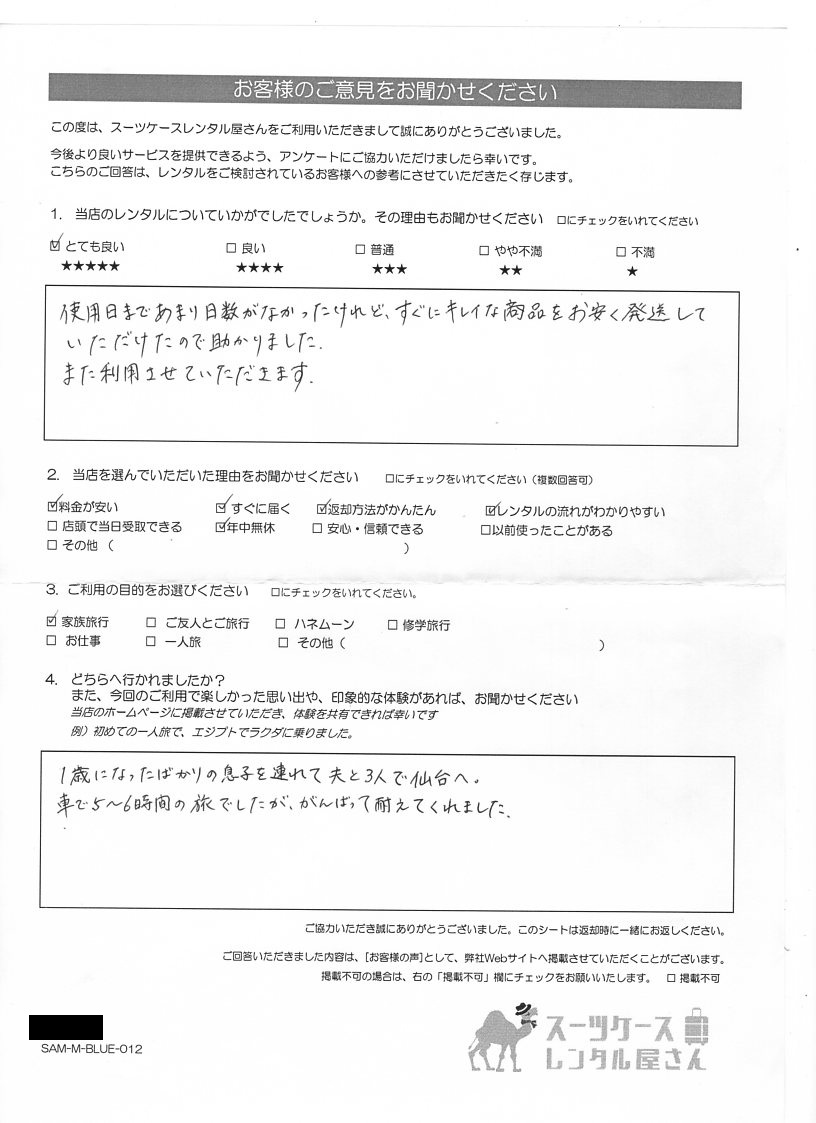 お客様のご意見をお聞かせください
この度は、スーツケースレンタル屋さんをご利用いただきまして誠にありがとうございました。
今後より良いサービスを提供できるよう、アンケートにご協力いただけましたら幸いです。
こちらのご回答は、レンタルをご検討されているお客様への参考にさせていただきたく存じます。
1. 当店のレンタルについていかがでしたでしょうか。その理由もお聞かせください □にチェックをいれてください
☑ とても良い □ 良い □ 普通 □ やや不満 □ 不満
★★★★★ ★★★★ ★★★ ★★ ★
使用日まであまり日数がなかったけれど、すぐにキレイな商品をお安く発送して
いただけたので助かりました.
また利用させていただきます.
2. 当店を選んでいただいた理由をお聞かせください □にチェックをいれてください（複数回答可）
☑料金が安い ☑すぐに届く ☑返却方法がかんたん ☑レンタルの流れがわかりやすい
□ 店頭で当日受取できる ☑年中無休 □ 安心・信頼できる □以前使ったことがある
□ その他（ ）
3. ご利用の目的をお選びください □にチェックをいれてください。
☑ 家族旅行 □ ご友人とご旅行 □ ハネムーン □ 修学旅行
□ お仕事 □ 一人旅 □ その他（ ）
4. どちらへ行かれましたか？
また、今回のご利用で楽しかった思い出や、印象的な体験があれば、お聞かせください
当店のホームページに掲載させていただき、体験を共有できれば幸いです
例）初めての一人旅で、エジプトでラクダに乗りました。
1歳になったばかりの息子を連れて夫と3人で仙台へ。
車で5〜6時間の旅でしたが、がんばって耐えてくれました.
ご協力いただき誠にありがとうございました。このシートは返却時に一緒にお返しください。
ご回答いただきました内容は、[お客様の声]として、弊社Webサイトへ掲載させていただくことがございます。
掲載不可の場合は、右の「掲載不可」欄にチェックをお願いいたします。 □ 掲載不可
SAM-M-BLUE-012
スーツケース
レンタル屋さん